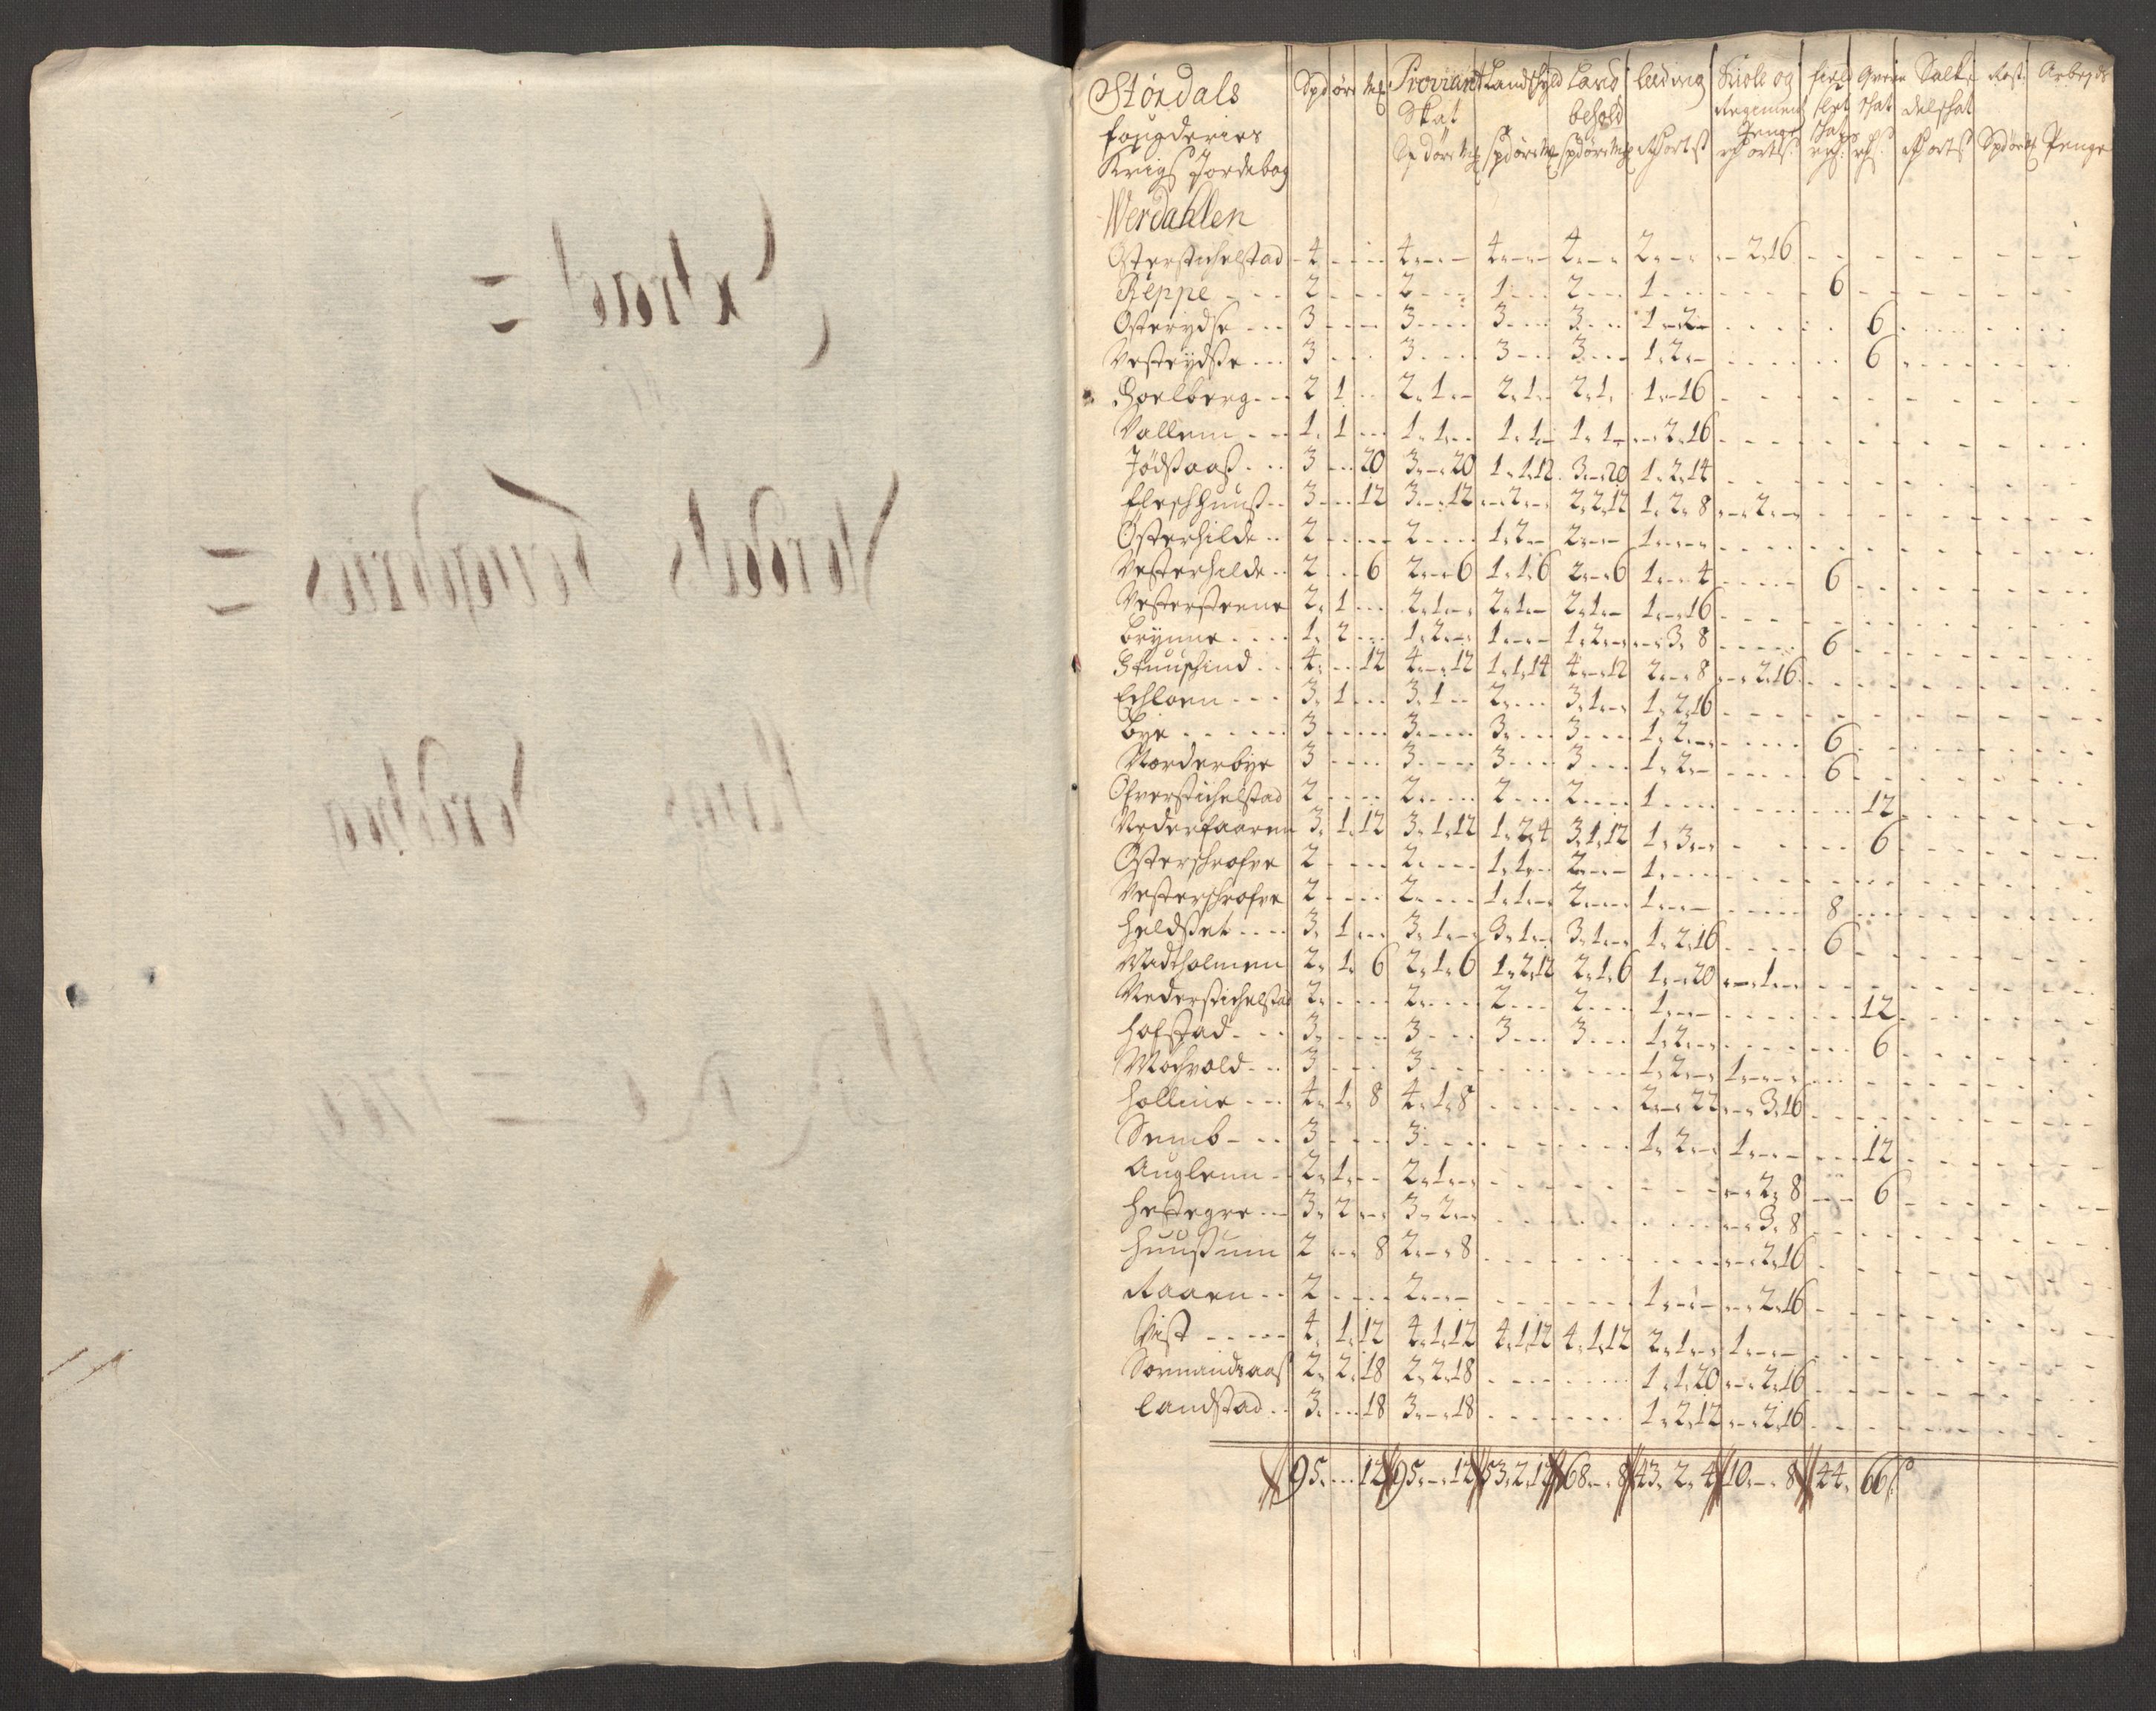 Stördals
fougderies
Krigs Jordebog
Spd öre mk Proviant Skat Spd öre mk Landskyld Spd öre mk Land behold Spd öre mk Leeding Rd ort s Skole og Regiment Penge Rd ort s
Rost. Spd öre mk Arbeyds Penge
Werdahlen
Österstichelstad 4 4 4 4 2 2.16
Reppe 2 2 1 2 1 6
Österydse 3 3 3 3 1.2 6
Vesterydse 3 3 3 3 1.2 6
Hoelberg 2 1 2.1 2.1 2.1 1.16
Vallem 1. 1 1.1 1.1 1.1 2.16
Jödsaas 3 20 3.20 1.1.12 3.20 1.2.14
Fleskhuus 3 12 3.12 2 2.2.12 1.2.8 2
Österhilde 2 2 1.2 2 1
Vesterhilde 2 6 2.6 1.1.6 2.6 1.4 6
Vestersteene 2. 1 2.1 2.1 2.1 1.16
Brynne 1. 2 1.2 1 1.2 3.8 6
4. 12 4.12 1.1.14 4.12 2.8 2.16
Echloen 3. 1 3.1 2 3.1 1.2.16
Bye 3 3 3 3 1.2 6
Norderbye 3 3 3 3 1.2 6
Ofverstichelstad 2 2 2 2 1 12
Nederfaaren 3. 1. 12 3.1.12 1.2.4 3.1.12 1.3 6
Österskrofve 2 2 1.1 2 1
Vesterskrofve 2 2 1.1 2 1 8
Heldset 3. 1 3.1 3.1 3.1 1.2.16 6
Midtholmen 2. 1. 6 2.1.6 1.2.12 2.1.6 1.20 1
Nederstichelstad 2 2 2 2 1 12
Hofstad 3 3 3 3 1.2 6
Mochvold 3 3 1.2 1
Hollme 4. 1. 8 4.1.8 2.22 3.16
Semb 3 3 1.2 1 12
Auglenn 2. 1 2.1 2.8 6
Hestegre 3. 2 3.2 3.8
Huusum 2 8 2.8 2.16
Raaen 2 2 1 2.16
Vist 4. 1. 12 4.1.12 4.1.12 4.1.12 2.1 1
Sormandsaas 2. 2. 18 2.2.18 1.1.20 2.16
Landstad 3. 18 3.18 1.2.12 2.16
95 12 95.12 53.2.12 68.8 43.2.4 10.8 44. 66